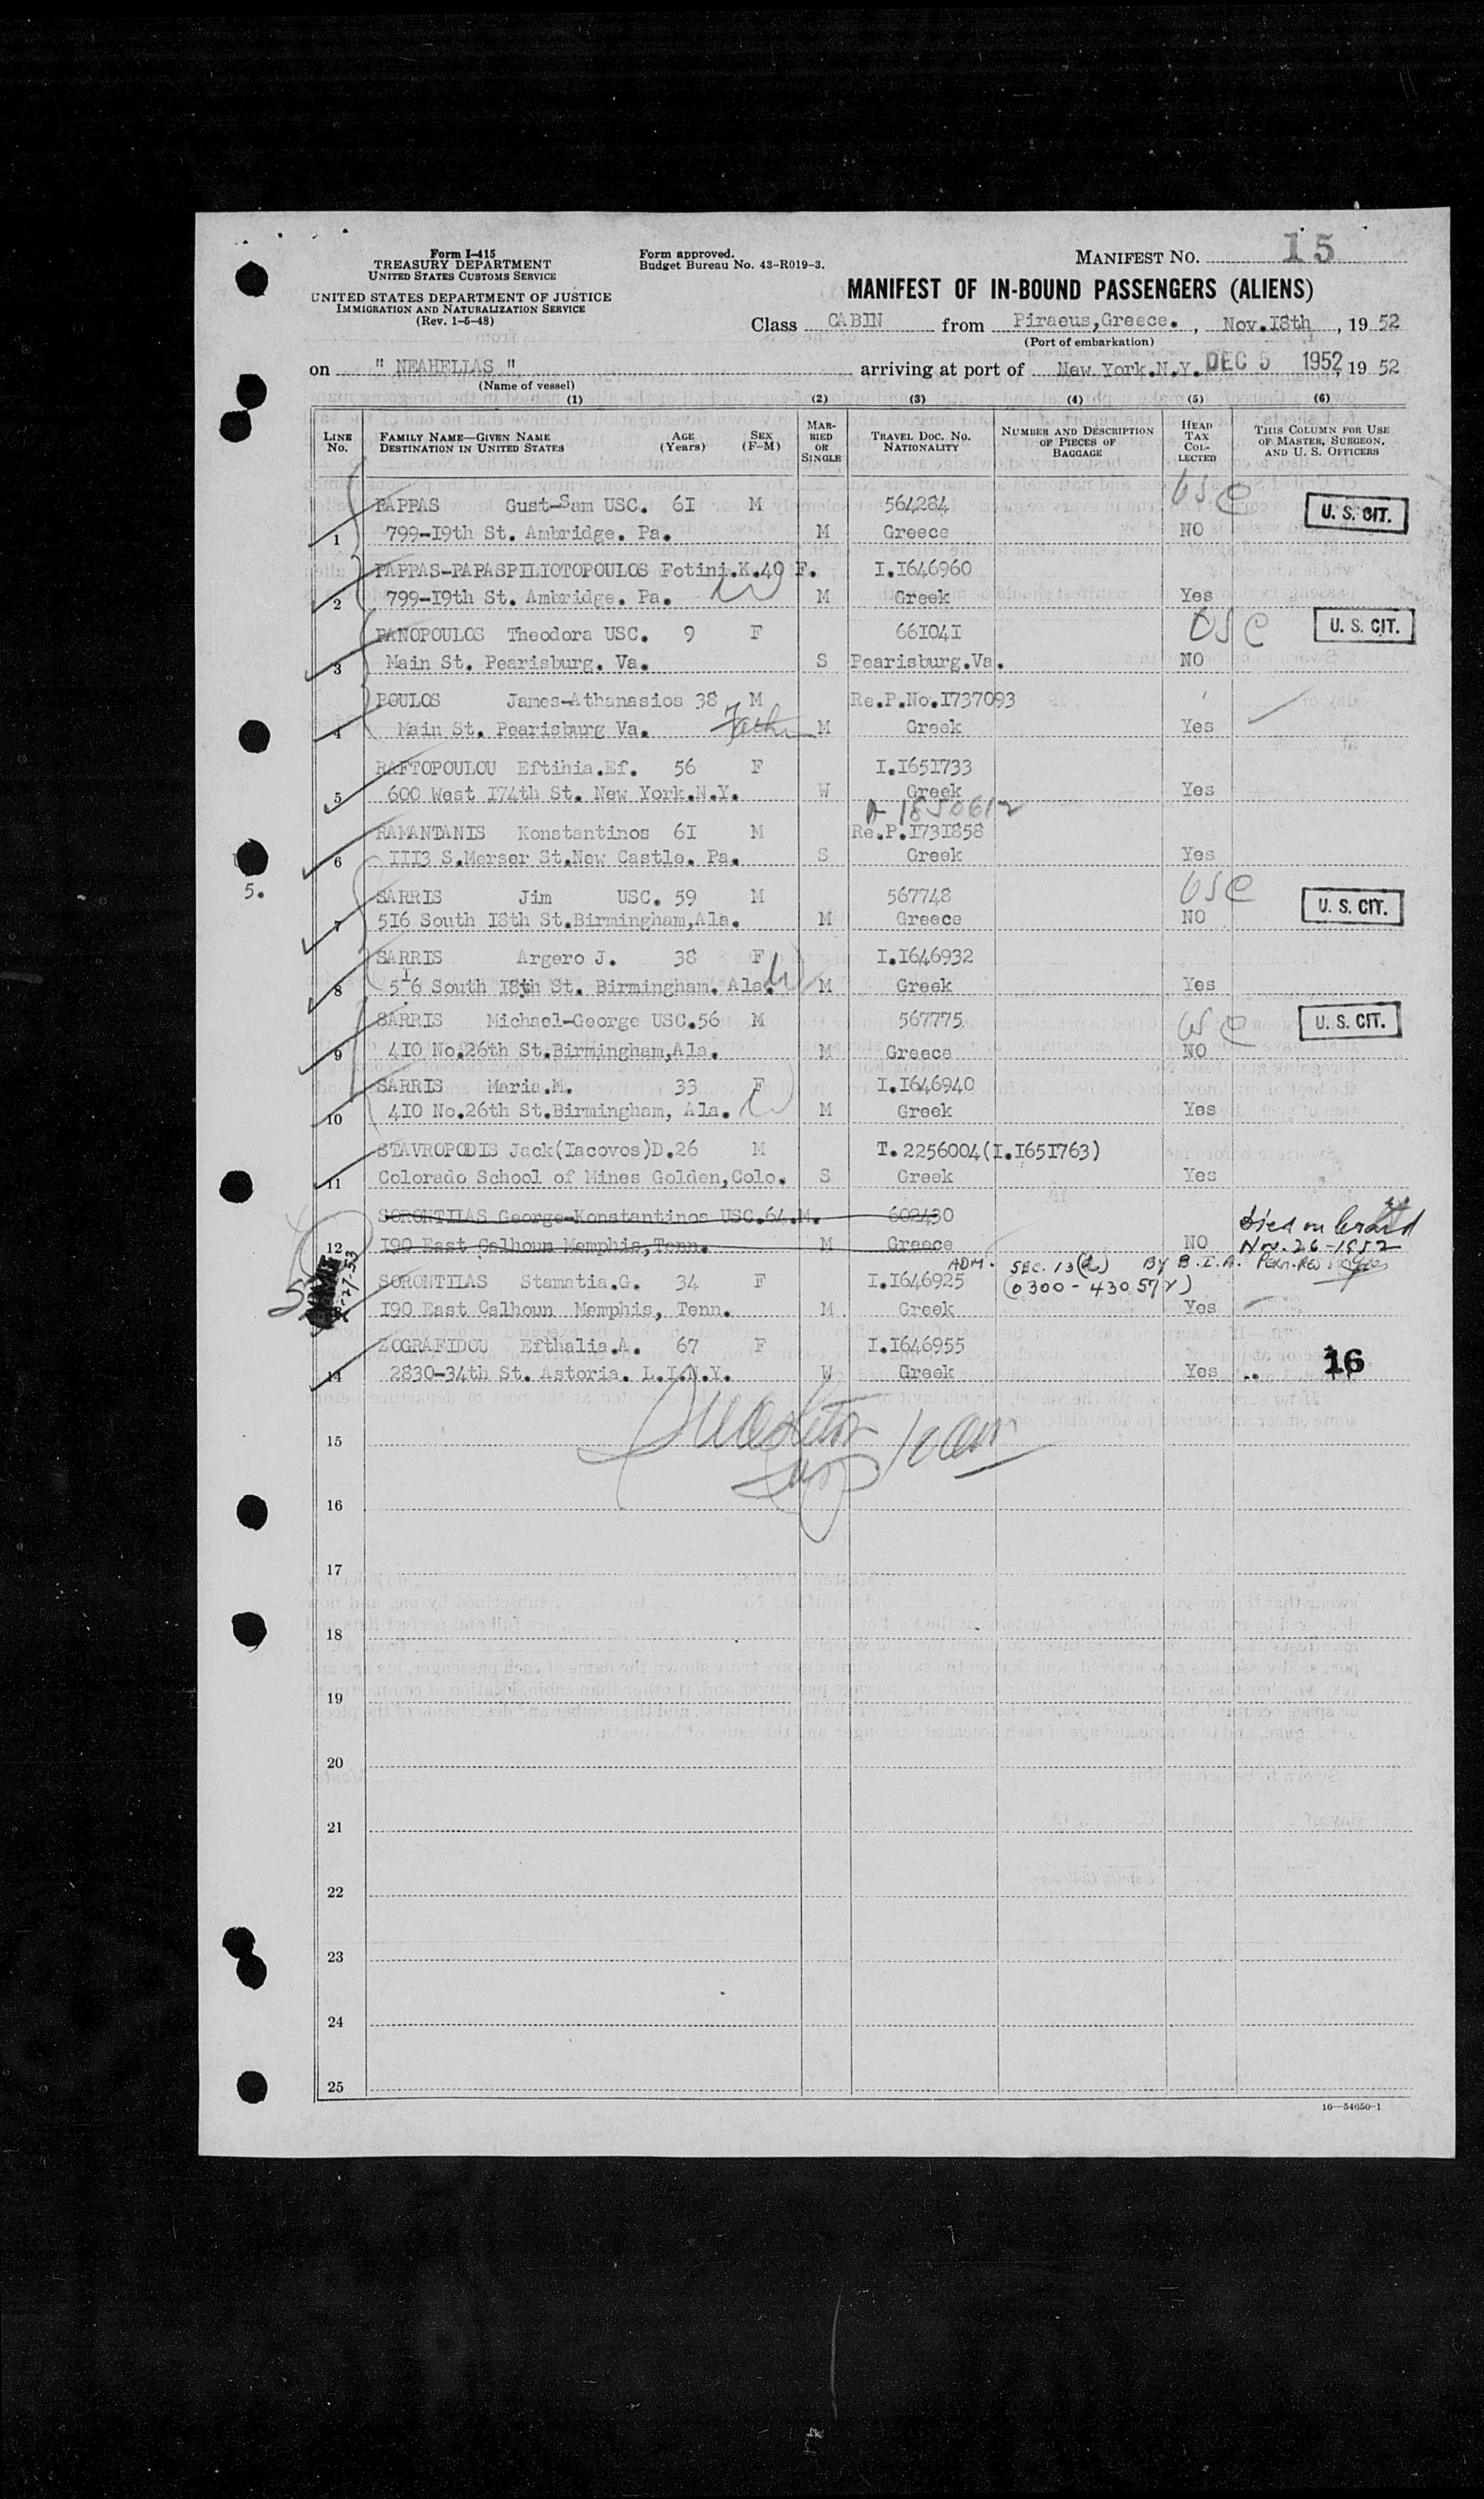 Form I-415
TREASURY DEPARTMENT
UNITED STATES CUSTOMS SERVICE
UNITED STATES DEPARTMENT OF JUSTICE
IMMIGRATION AND NATURALIZATION SERVICE
(Rev. 1-5-48)
Form approved.
Budget Bureau No. 43-R019-3.
MANIFEST NO. 15
MANIFEST OF IN-BOUND PASSENGERS (ALIENS)
Class CABIN from Piraeus,Greece. , Nov.I8th , 19 52
(Port of embarkation)
on " NEAHELLAS " arriving at port of New York.N.Y. DEC 5 1952, 19 52
(Name of vessel)
(1) (2) (3) (4) (5) (6)
LINE No. FAMILY NAME—GIVEN NAME DESTINATION IN UNITED STATES AGE (Years) SEX (F-M) MARRIED OR SINGLE TRAVEL DOC. NO. NATIONALITY NUMBER AND DESCRIPTION OF PIECES OF BAGGAGE HEAD TAX COLLECTED THIS COLUMN FOR USE OF MASTER, SURGEON, AND U. S. OFFICERS
PAPPAS Gust-Sam USC. 6I M 564284 USC U. S. CIT.
1 799-I9th St. Ambridge. Pa. M Greece NO
PAPPAS-PAPASPILIOTOPOULOS Fotini.K.40 F. I.I646960
2 799-I9th St. Ambridge. Pa. W M Greek Yes
PANOPOULOS Theodora USC. 9 F 66I04I USC U. S. CIT.
3 Main St. Pearisburg. Va. S Pearisburg.Va. NO
POULOS James-Athanasios 38 M Re.P.No.I737093
4 Main St. Pearisburg Va. Father M Greek Yes
RAFTOPOULOU Eftihia.Ef. 56 F I.I65I733
5 600 West I74th St. New York.N.Y. W Greek Yes
A 1850612
RAMANTANIS Konstantinos 6I M Re.P.I73I858
6 III3 S.Merser St.New Castle. Pa. S Greek Yes
5.
SARRIS Jim USC. 59 M 567748 USC U. S. CIT.
7 5I6 South I8th St.Birmingham,Ala. M Greece NO
SARRIS Argero J. 38 F I.I646932
8 5I6 South I8th St. Birmingham. Ala. W M Greek Yes
SARRIS Michael-George USC.56 M 567775 USC U. S. CIT.
9 4I0 No.26th St.Birmingham,Ala. M Greece NO
SARRIS Maria.M. 33 F I.I646940
10 4I0 No.26th St.Birmingham, Ala. W M Greek Yes
STAVROPODIS Jack(Iacovos)D.26 M T.2256004(I.I65I763)
11 Colorado School of Mines Golden,Colo. S Greek Yes
SORONTILAS George-Konstantinos USC.64.M. 602430 Died on board
12 I90 East Calhoun Memphis,Tenn. M Greece NO Nov. 26-1952
ADM. SEC. 13(c) By B.I.A. PERM. RES
SORONTILAS Stamatia.G. 34 F I.I646925 (0300-430577)
I90 East Calhoun Memphis, Tenn. M Greek Yes
ZOGRAFIDOU Efthalia.A. 67 F I.I646955 16
14 2830-34th St. Astoria. L.I.N.Y. W Greek Yes
15
16
17
18
19
20
21
22
23
24
25
16—54650-1